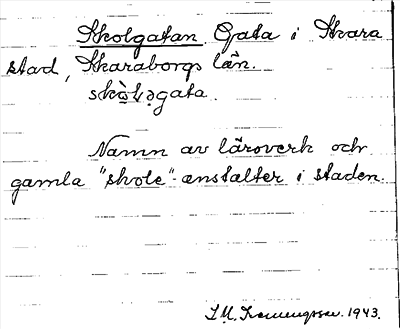 Skolgatan. Gata i Skara
stad, Skaraborgs län.
Namn av läroverk och
gamla "skole"-anstalter i staden.
1943.